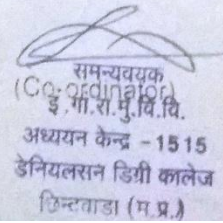 समन्यवयक
(Co-ordinator)
इ.गाँ.रा.मु.वि.वि.
अध्ययन केन्द्र - 1515
डेनियलसन डिग्री कालेज
छिन्दवाडा (म.प्र.)